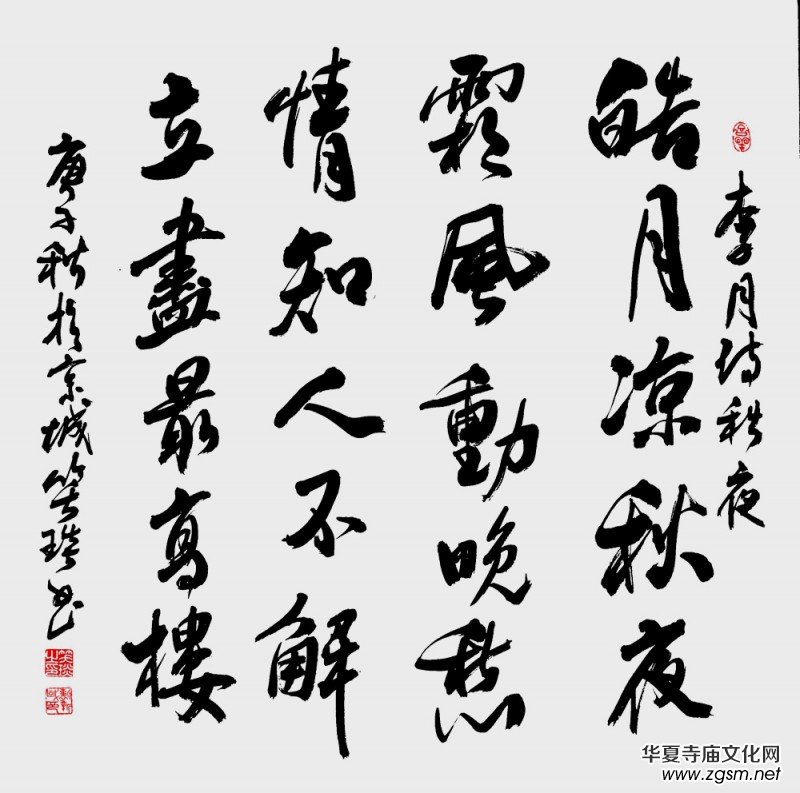 李月诗秋夜
皓月凉秋夜
霜風動晚愁
情知人不解
立盡最高樓
庚子秋於京城笑琰书
华夏寺庙文化网
www.zgsm.net